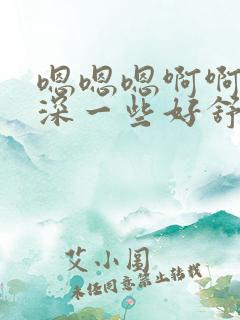 嗯嗯嗯啊啊
深一些好舒
艾小图
未经同意禁止转载